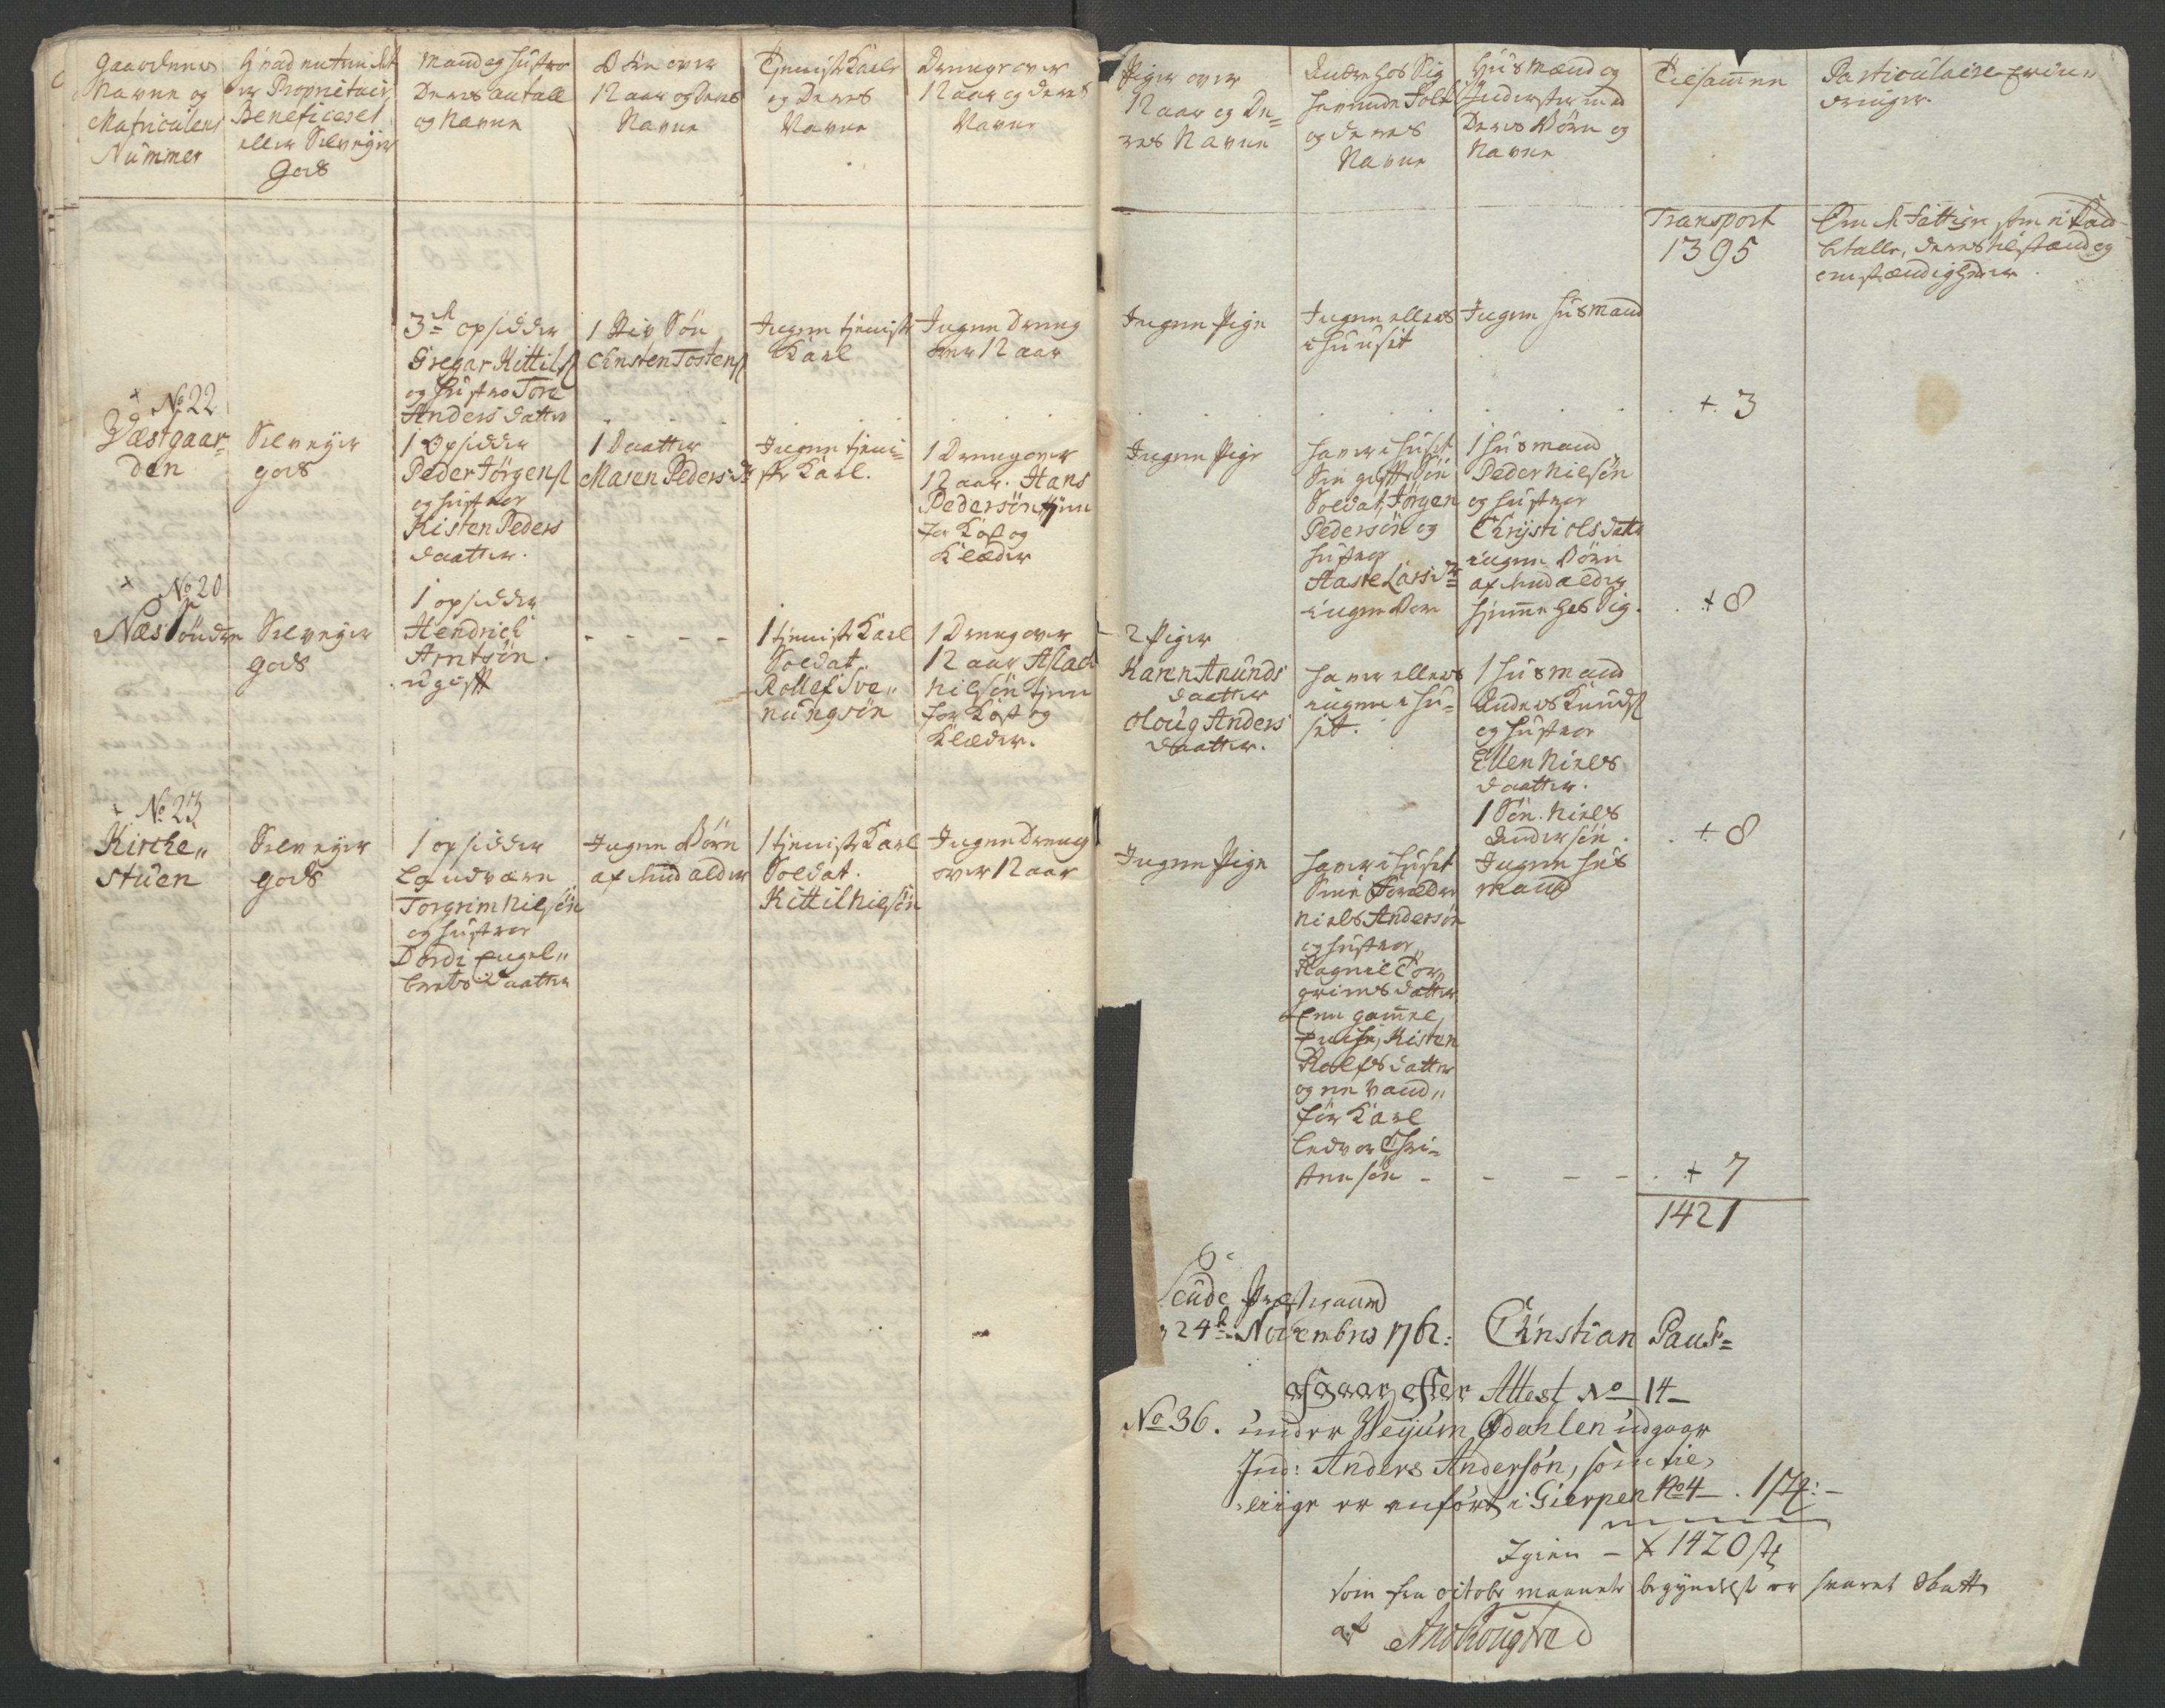 Gaardenes
Navne og
Matriculens
Nummer
Hvad enten det
er Proprietair
Beneficeret
eller Selveyer
Gods
Mand og Hustroe
Deres antall
og Navne
Børn over
12 aar og deres
Navne
Tjeniste Karle
og Deres
Navne
Drenge over
12 aar og deres
Navne
Piger over
12 aar og De=
res Navne
Andre hos Sig
havende Folk
og deres
Navne
Huusmænd og
Inderster med
Deres Børn og
Navne
Tilsammen
Particulaire Erin„
dringer
Transport
1395
Om de Fattige som ei kand
betale, deres tilstand og
omstændigheder
3de opsidder
Gregar Kittils
og Hustroe Tore
Anders datter
1 Stiv Søn
Christen Tostens
Ingen tjeniste
Karl
Ingen Dreng
over 12 aar
Ingen Pige
Ingen ellers
i Huuset
Ingen Huusmand
+ 3
+ No 22
Wæstgaar=
den
Selveyer
gods
1 Opsidder
Peder Jörgens
og hustroe
Kisten Peders
daatter.
1 Daatter
Maren Peders dr
Ingen tjeni=
ste Karl.
1 Dreng over
12 aar. Hans
Pedersön tjener
for Kost og
Klæder
Ingen Pige
haver i Huset
Sin gifte Søn
Soldat, Jörgen
Pedersön og
hustroe
Aaste Lars dr
ingen Børn
1 Husmand
Peder Nielsön
og hustroe
Chrysti Ols datter
ingen Børn
af End alder
hjemme hos Sig.
+ 8
+ No 20
Næs Söndre
Selveyer
gods
1 opsidder
Hendrich
Arntsön.
ugift
- - - -
1 tjeniste Karl
Soldat.
Rollef Sve„
nungsön
1 Dreng over
12 aar Aslach
Nilsön tjener
for Kost og
Klæder.
2 Piger
Karen Anunds
daatter
Oloug Anders
daatter.
haver ellers
ingen i Hu=
set.
1 Husmand
Anders Knuds
og hustroe
Ellen Niels
daatter.
1 Søn. Niels
Andersön.
+ 8
+ No 23
Kirche„
stuen
Selveyer
gods
1 opsidder
Torgrim Nilsön
og hustroe
Dordi Engel„
brets daatter
Ingen Børn
af End alder
1 tjeniste Karl
Soldat.
Kittil Nilsön
Ingen Dreng
over 12 aar
Ingen Pige
haver i Huset
Sine Forældre
Niels Andersön
og hustroe,
Ragnil Tor„
grims datter
Een gammel
Enche, Kisten
Rolfs datter
og en vand„
för Karl
Ledvor Chri=
stensön - - - -
Ingen Hus
mand
+ 7
1421
Soude Præstegaard
24de Novembris 1762:
Christian Paus=
No 36. afgaar efter Attest No 14
under Weyum Ødahlen udgaar
Ind: Anders Andersön, som tie„
lige er anført i Gierpen No 4 . 1 st:
Igien - + 1420 st
som fra octobr maaneds begyndelse er svaret Skatt
af